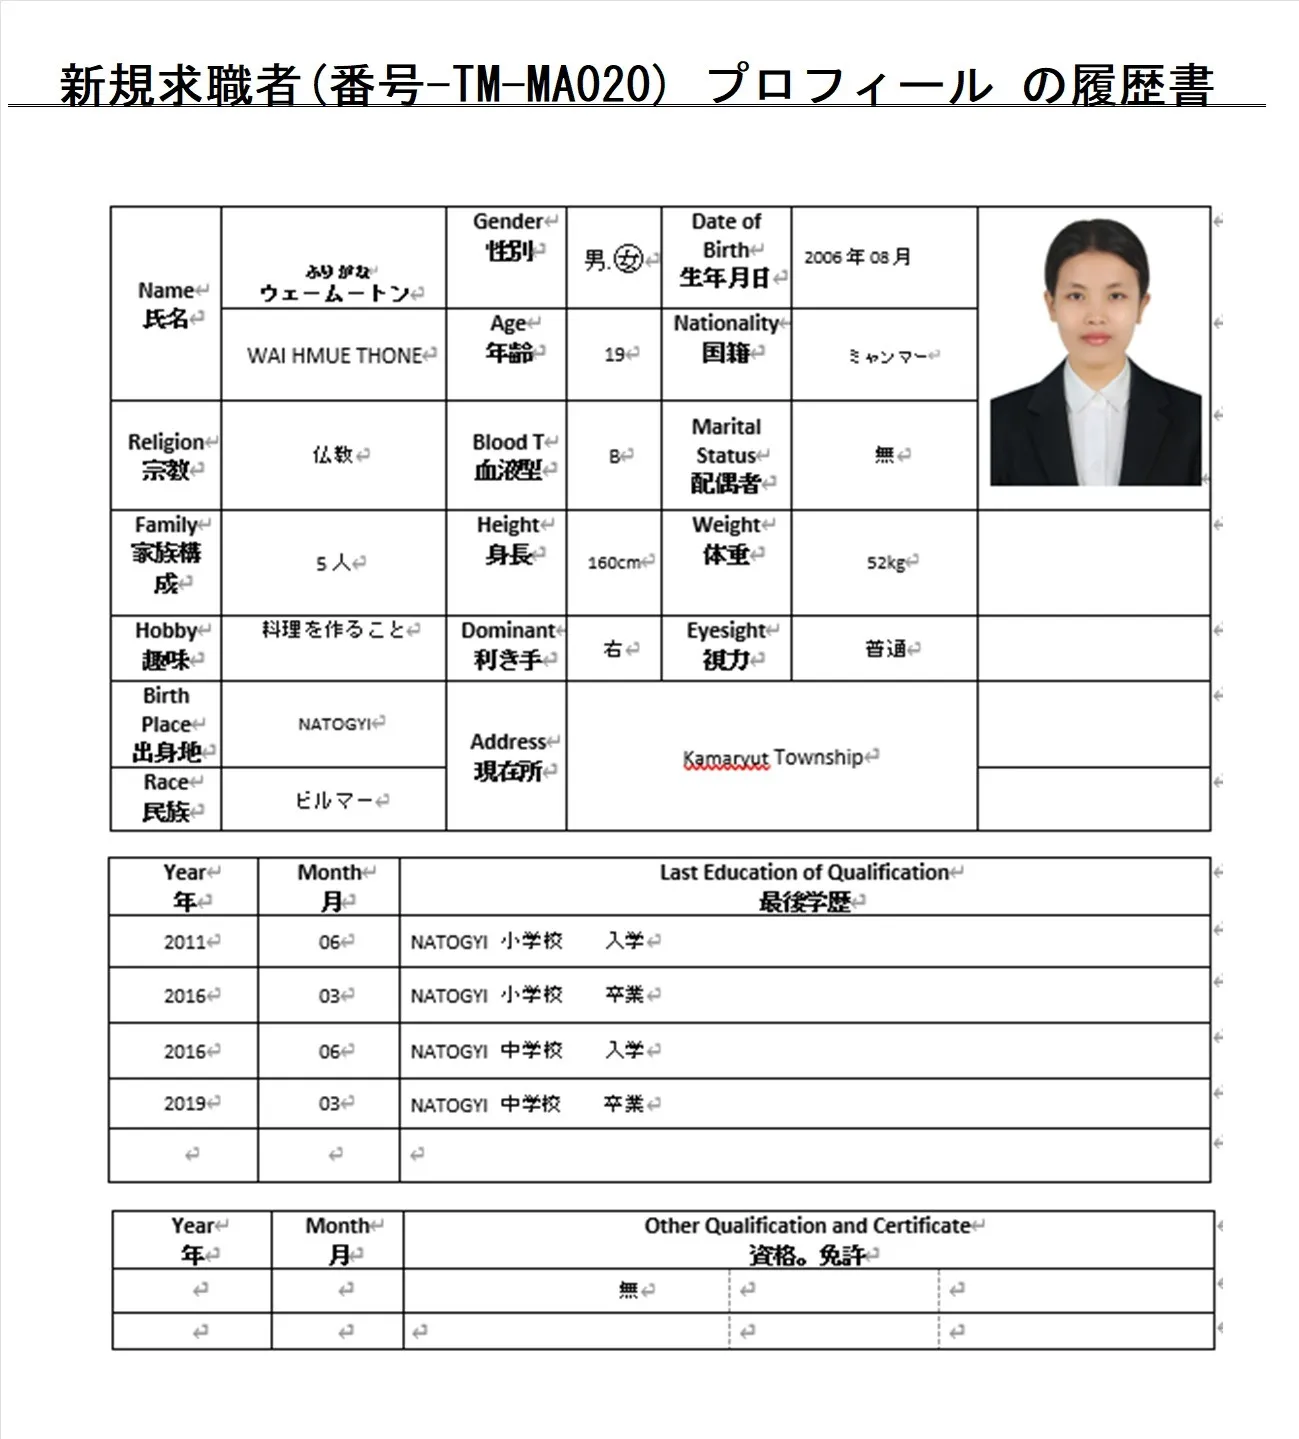 新規求職者(番号-TM-MA020) プロフィール の履歴書
Name
氏名
ふりがな
ウェームートン
Gender
性別
男.女
Date of
Birth
生年月日
2006 年 08 月
WAI HMUE THONE
Age
年齢
19
Nationality
国籍
ミャンマー
Religion
宗教
仏教
Blood T
血液型
B
Marital
Status
配偶者
無
Family
家族構
成
5 人
Height
身長
160cm
Weight
体重
52kg
Hobby
趣味
料理を作ること
Dominant
利き手
右
Eyesight
視力
普通
Birth
Place
出身地
NATOGYI
Address
現在所
Kamaryut Township
Race
民族
ビルマー
Year
年
Month
月
Last Education of Qualification
最後学歴
2011 06 NATOGYI 小学校 入学
2016 03 NATOGYI 小学校 卒業
2016 06 NATOGYI 中学校 入学
2019 03 NATOGYI 中学校 卒業
Year
年
Month
月
Other Qualification and Certificate
資格。免許
無